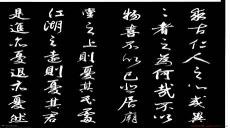 求古仁人之心或異
二者之為何哉不以
物喜不以己悲居廟
堂之上則憂其民處
江湖之遠則憂其君
是進亦憂退亦憂然